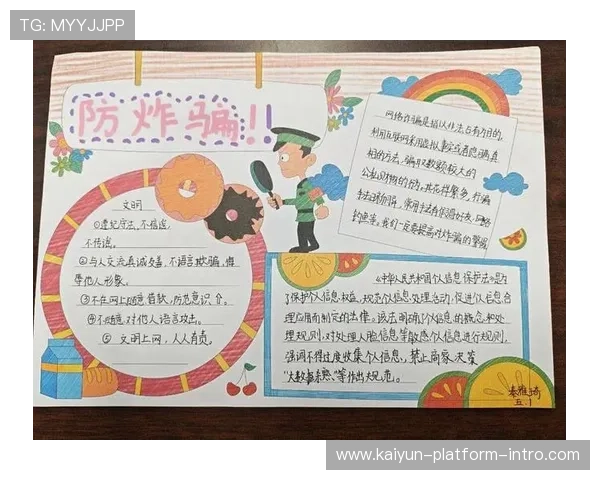 TG: MYYJJPP
防炸骗!!
文明
①遵纪守法,不信谣,
不传谣。
②与人交流真诚友善,不语言欺骗,推
辱他人形象。
③不在网上随意
④不随意对他人语言攻击。
⑤ 文明上网,人人有责。
网络诈骗是指以非法占有为目的,
利用互联网采用虚拟事实或者隐瞒真
相的方法,骗取数额较大的
公私财物的行为。其花样繁多,行骗
手法
钓鱼等。我们一定要提高对诈骗的警惕
《中华人民共和国个信息保护法》是为
了保护个人信息权益,规范个人信息处理活动,促进个人信息合
理应用而制定的法律。该法明确了个人信息的概念和处
理规则,对处理人脸信息等敏感个人信息进行规则,
强调不得过度收集个人信息,禁止商家
"大数据杀熟"等作出
五.1
www.kaiyun-platform-intro.com